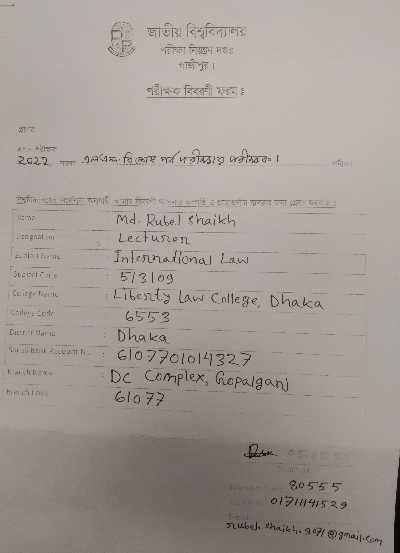 জাতীয় বিশ্ববিদ্যালয়
পরীক্ষা নিয়ন্ত্রণ দপ্তর
গাজীপুর।
পরীক্ষক বিবরণী ফরম ঃ
2022 এলএলবি শেষ পর্ব পরীক্ষার পরীক্ষক।
Name : Md. Rubel Shaikh
Designation : Lecturer
Subject Name : International Law
Subject Code : 513109
College Name : Liberty Law College, Dhaka
College Code : 6553
District Name : Dhaka
Sonali Bank Account No. : 6107701014327
Branch Name : DC Complex, Gopalganj
Branch Code : 61077
80555
01711141529
rubel.shaikh.9071@gmail.com